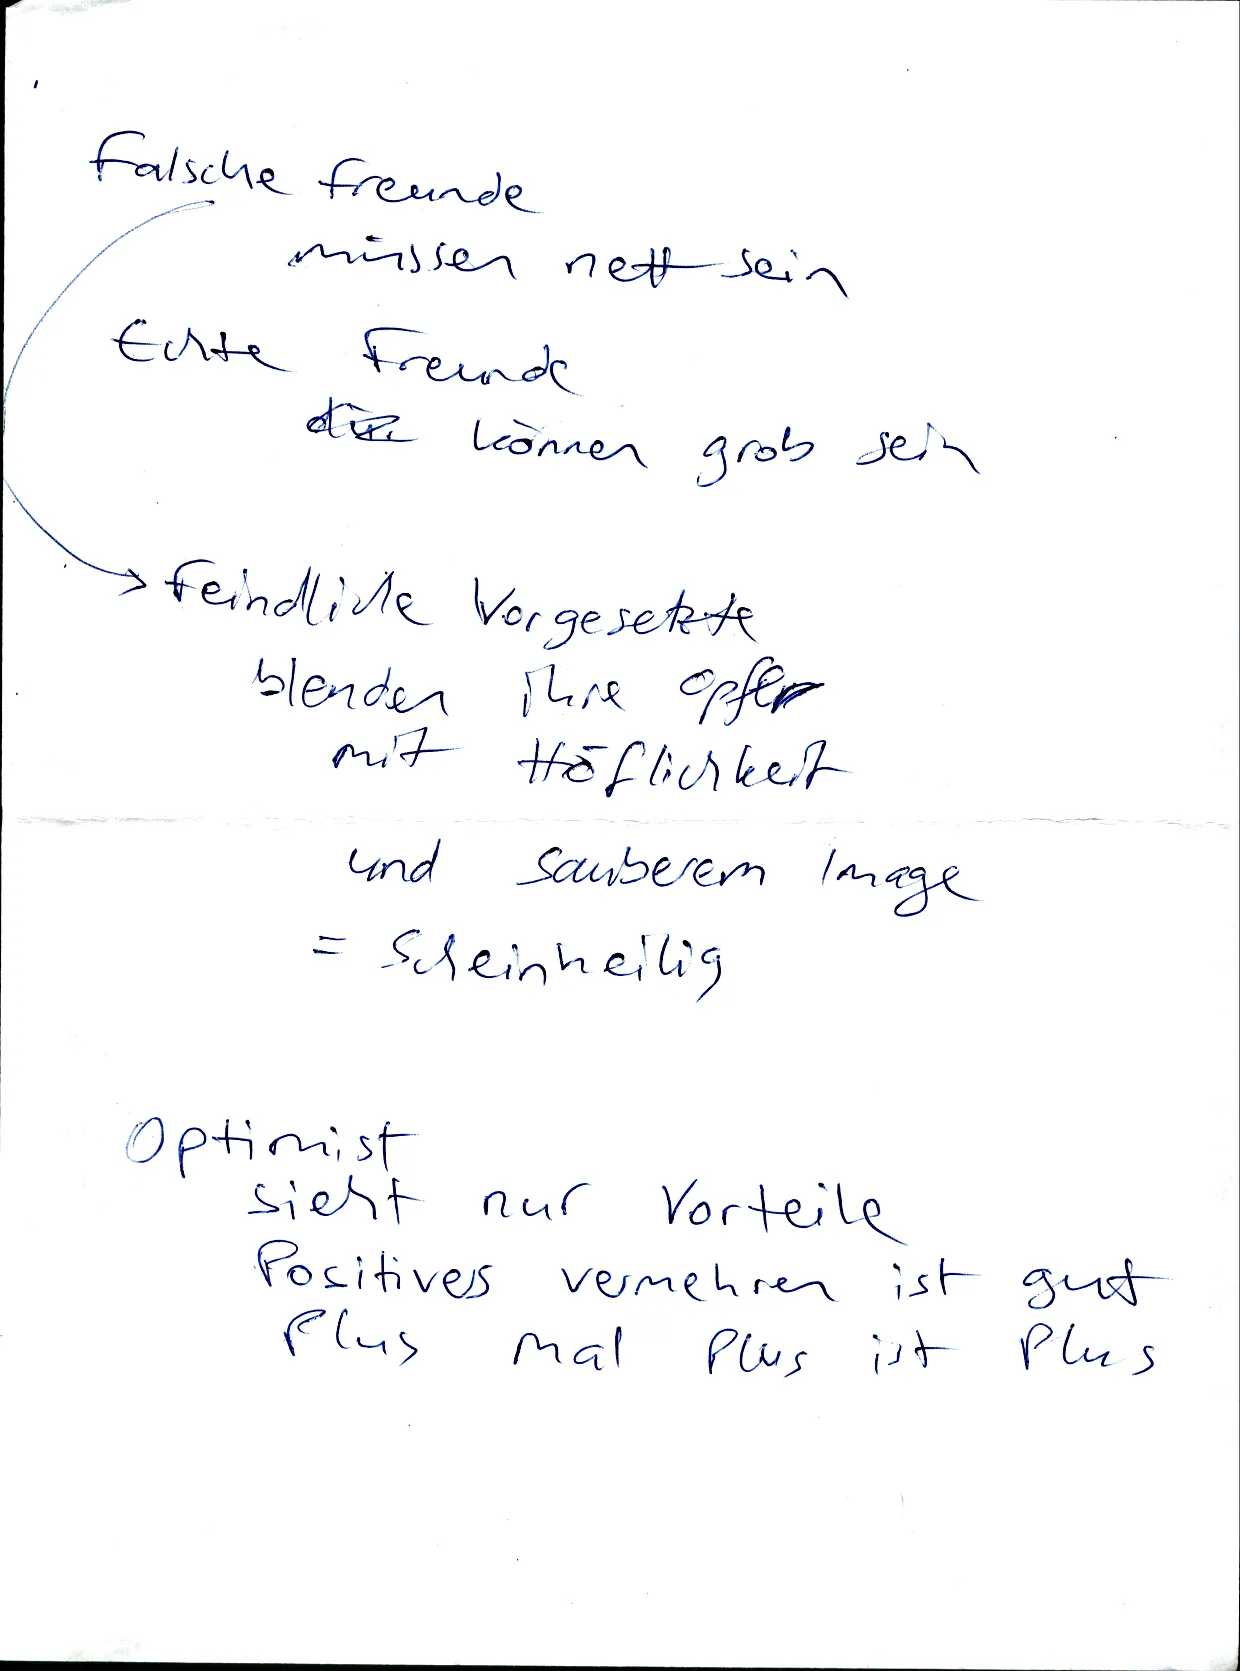 Falsche Freunde
müssen nett sein
Echte Freunde
können grob sein
Feindliche Vorgesetzte
blenden ihre Opfer
mit Höflichkeit
und sauberem Image
= Scheinheilig
Optimist
sieht nur Vorteile
Positives vermehren ist gut
Plus mal Plus ist Plus